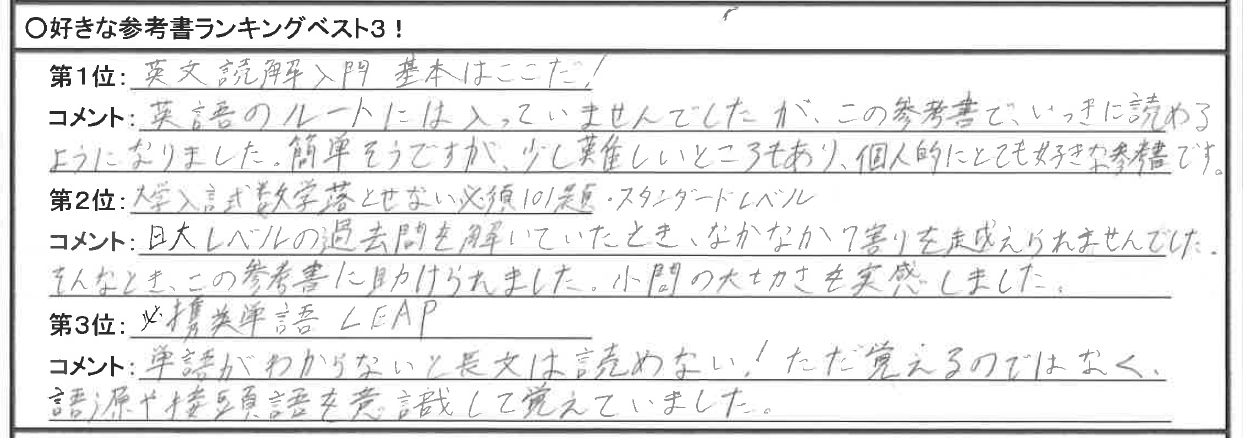 〇好きな参考書ランキングベスト3！
第1位: 英文読解入門 基本はここだ!
コメント: 英語のルートには入っていませんでしたが、この参考書で、いっきに読める
ようになりました。簡単そうですが、少し難しいところもあり、個人的にとても好きな参考書です。
第2位: 大学入試数学落とせない必須101題・スタンダードレベル
コメント: 日大レベルの過去問を解いていたとき、なかなか7割りを越えられませんでした。
そんなとき、この参考書に助けられました。小問の大切さを実感しました。
第3位: 必携英単語 LEAP
コメント: 単語がわからないと長文は読めない!ただ覚えるのではなく、
語源や接頭語を意識して覚えていました。